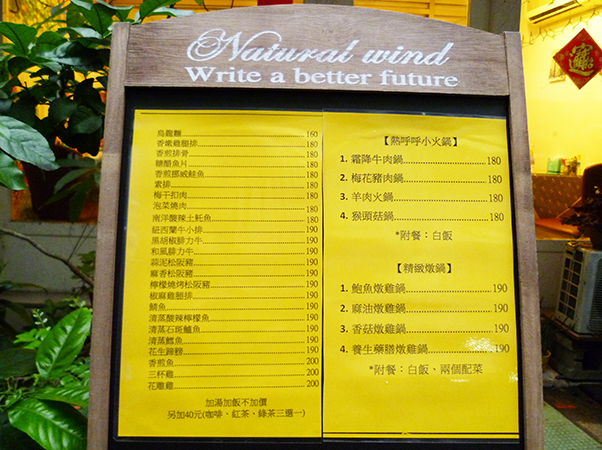 Natural wind
Write a better future
烏龍麵 160
香嫩雞腿排 180
香煎排骨 180
糖醋魚片 180
香煎挪威鮭魚 180
素排 180
梅干扣肉 180
泡菜燒肉 180
南洋酸辣土魠魚 180
紐西蘭牛小排 190
黑胡椒腓力牛 190
和風腓力牛 190
蒜泥松阪豬 190
麻香松阪豬 190
檸檬燒烤松阪豬 190
椒麻雞腿排 190
鯖魚 190
清蒸酸辣檸檬魚 190
清蒸石斑鱸魚 190
清蒸鱈魚 190
花生蹄膀 190
香煎魚 200
三杯雞 200
花雕雞 200
加湯加飯不加價
另加40元(咖啡、紅茶、綠茶三選一)
【熱呼呼小火鍋】
1. 霜降牛肉鍋 180
2. 梅花豬肉鍋 180
3. 羊肉火鍋 180
4. 猴頭菇鍋 180
*附餐：白飯
【精緻燉鍋】
1. 鮑魚燉雞鍋 190
2. 麻油燉雞鍋 190
3. 香菇燉雞鍋 190
4. 養生藥膳燉雞鍋 190
*附餐：白飯、兩個配菜